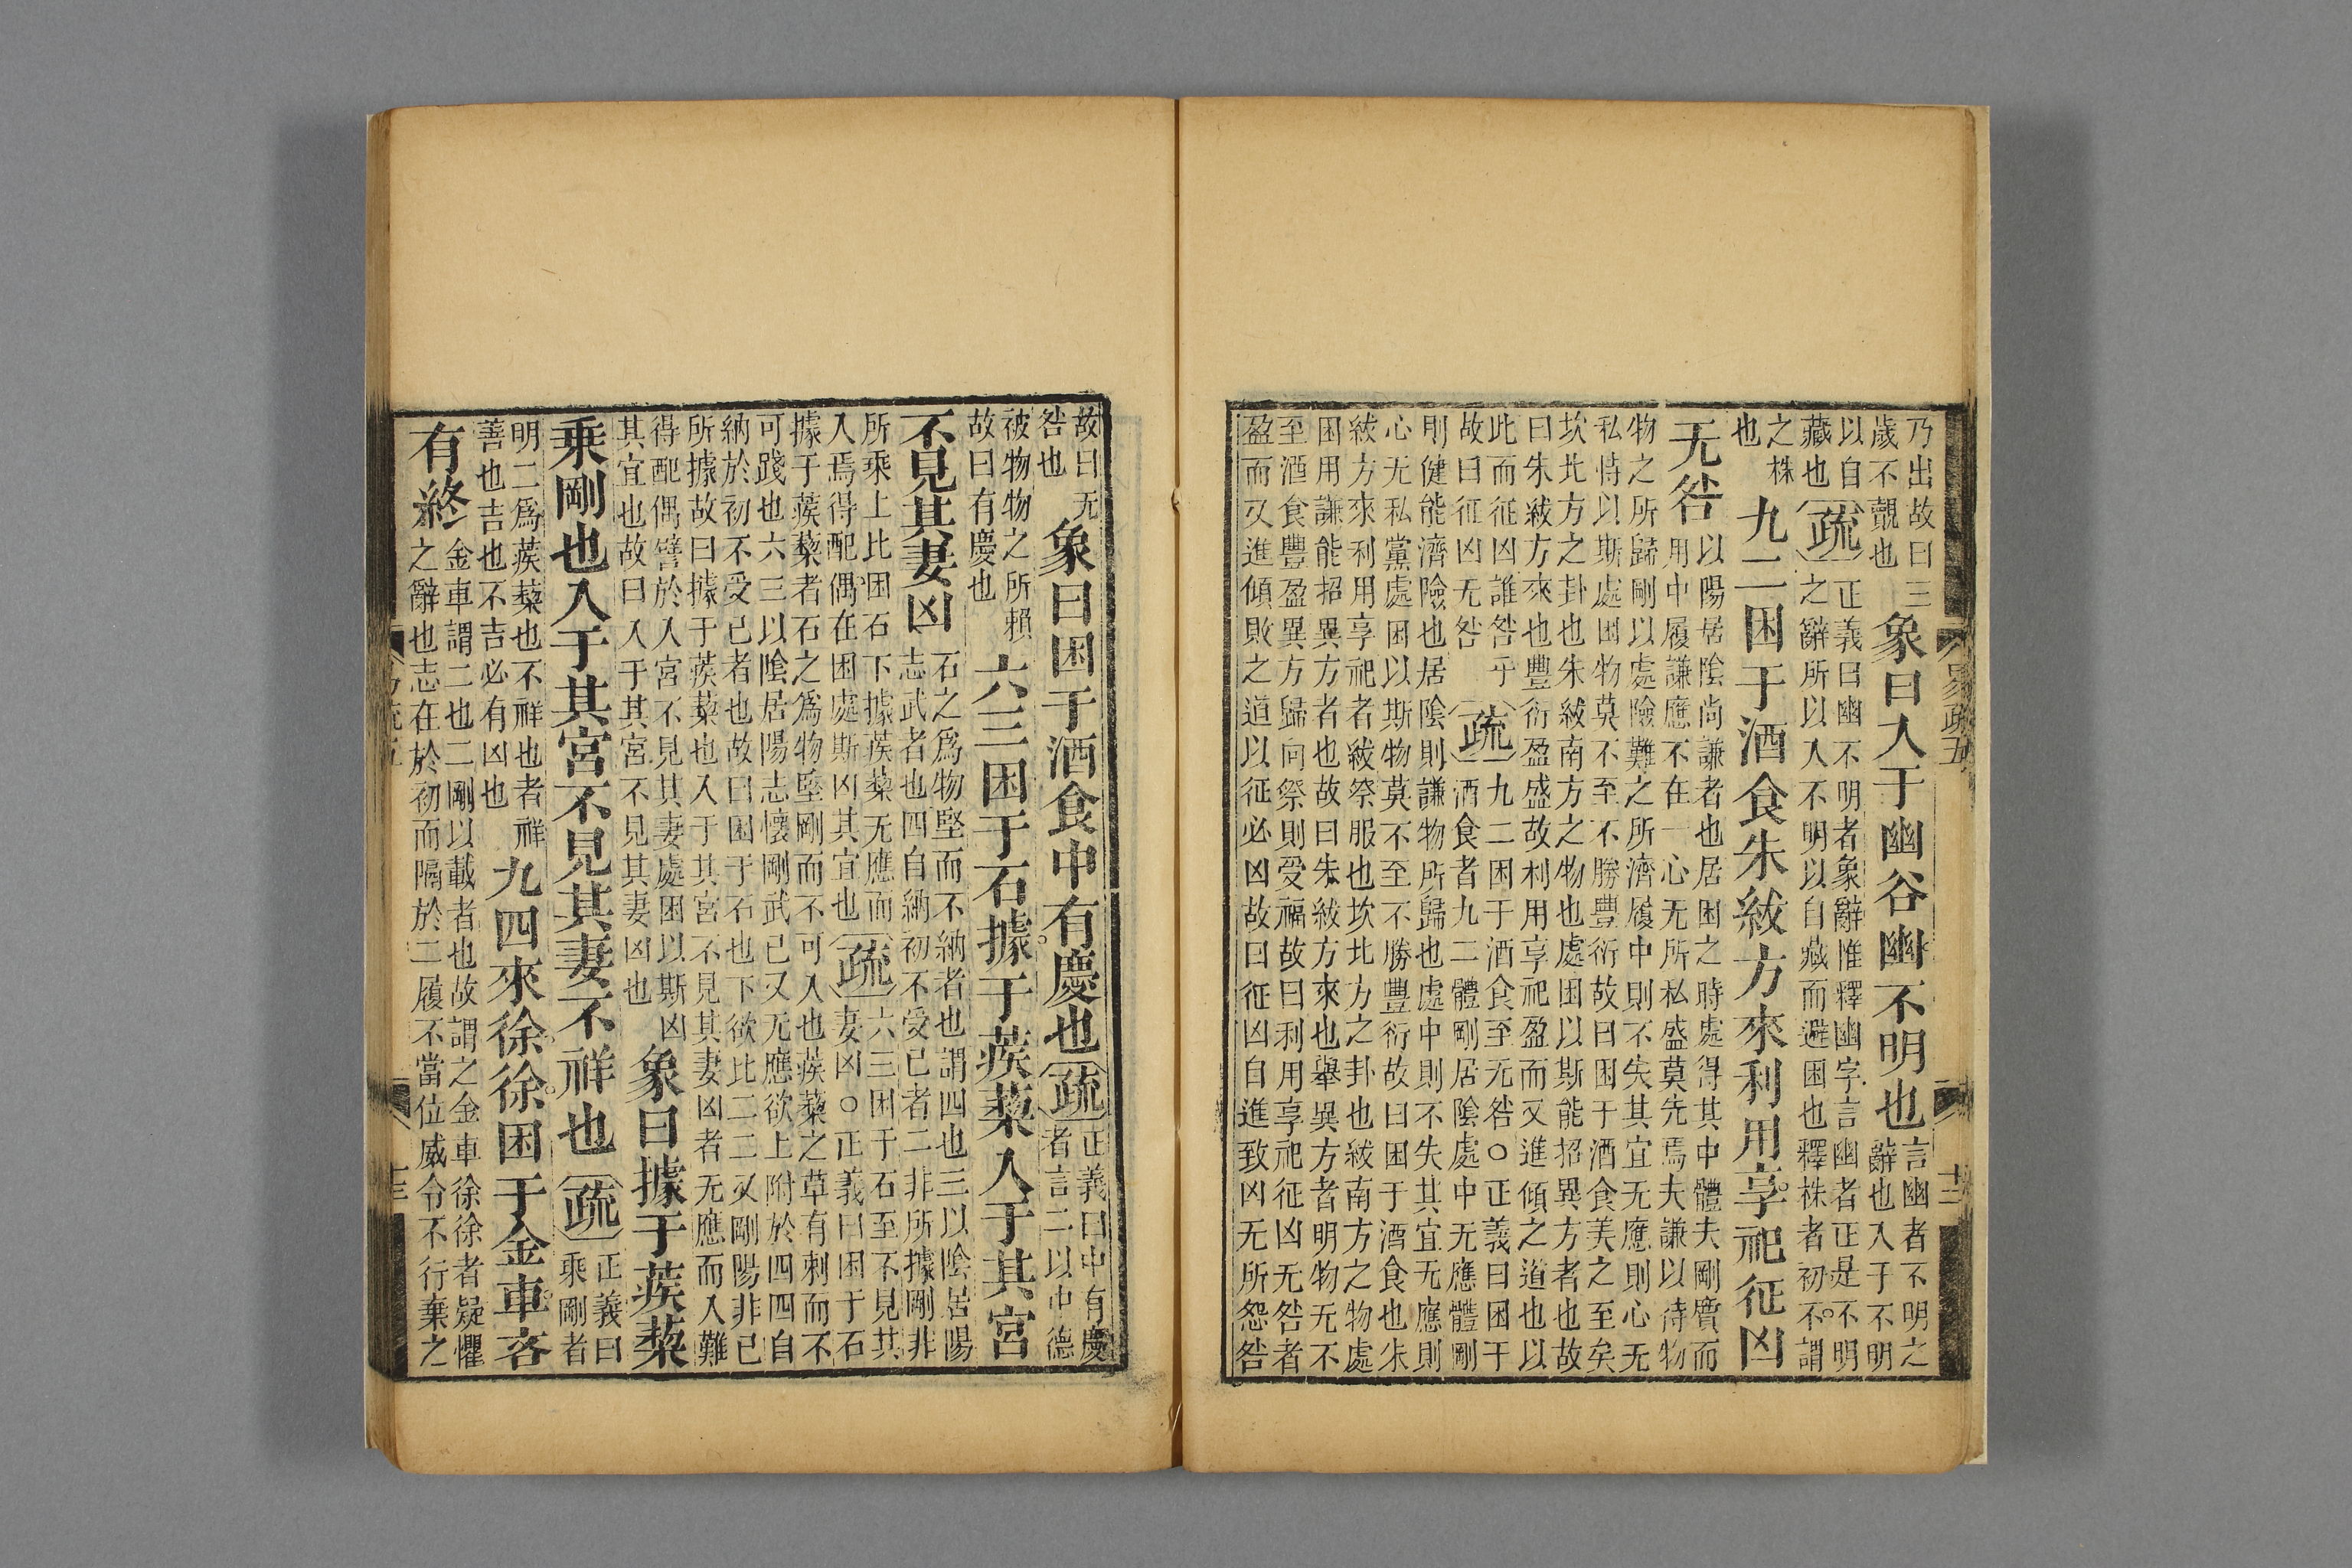 易疏五
十二
乃出故曰三
歲不覿也
象曰入于幽谷幽不明也
言幽者不明之
辭也入于不明
以自
藏也
疏
正義曰幽不明者象辭惟釋幽字言幽者正是不明
之辭所以入不明以自藏而避困也釋株者初不謂
之株
也
九二困于酒食朱紱方來利用享祀征凶
无咎
以陽居陰尚謙者也居困之時處得其中體夫剛質而
用中履謙應不在一心无所私盛莫先焉夫謙以待物
物之所歸剛以處險難之所濟履中則不失其宜无應則心无
私恃以斯處困物莫不至不勝豐衍故曰困于酒食美之至矣
坎北方之卦也朱紱南方之物也處困以斯能招異方者也故
曰朱紱方來也豐衍盈盛故利用享祀盈而又進傾之道也以
此而征凶誰咎乎
故曰征凶无咎
疏
九二困于酒食至无咎○正義曰困于
酒食者九二體剛居陰處中无應體剛
則健能濟險也居陰則謙物所歸也處中則不失其宜无應則
心无私黨處困以斯物莫不至不勝豐衍故曰困于酒食也朱
紱方來利用享祀者紱祭服也坎北方之卦也紱南方之物處
困用謙能招異方者也故曰朱紱方來也舉異方者明物无不
至酒食豐盈異方歸向祭則受福故曰利用享祀征凶无咎者
盈而又進傾敗之道以征必凶故曰征凶自進致凶无所怨咎
故曰无
咎也
象曰困于酒食中有慶也
疏
正義曰中有慶
者言二以中德
被物物之所賴
故曰有慶也
六三困于石據于蒺蔾入于其宮
不見其妻凶
石之爲物堅而不納者也謂四也三以陰居陽
志武者也四自納初不受已者二非所據剛非
所乘上比困石下據蒺蔾无應而
入焉得配偶在困處斯凶其宜也
疏
六三困于石至不見其
妻凶○正義曰困于石
據于蒺蔾者石之爲物堅剛而不可入也蒺蔾之草有刺而不
可踐也六三以陰居陽志懷剛武已又无應欲上附於四四自
納於初不受已者也故曰困于石也下欲比二二又剛陽非已
所據故曰據于蒺蔾也入于其宮不見其妻凶者无應而入難
得配偶譬於入宮不見其妻處困以斯凶
其宜也故曰入于其宮不見其妻凶也
象曰據于蒺蔾
乘剛也入于其宮不見其妻不祥也
疏
正義曰
乘剛者
明二爲蒺蔾也不祥也者祥
善也吉也不吉必有凶也
九四來徐徐困于金車吝
有終
金車謂二也二剛以載者也故謂之金車徐徐者疑懼
之辭也志在於初而隔於二履不當位威令不行棄之
十三